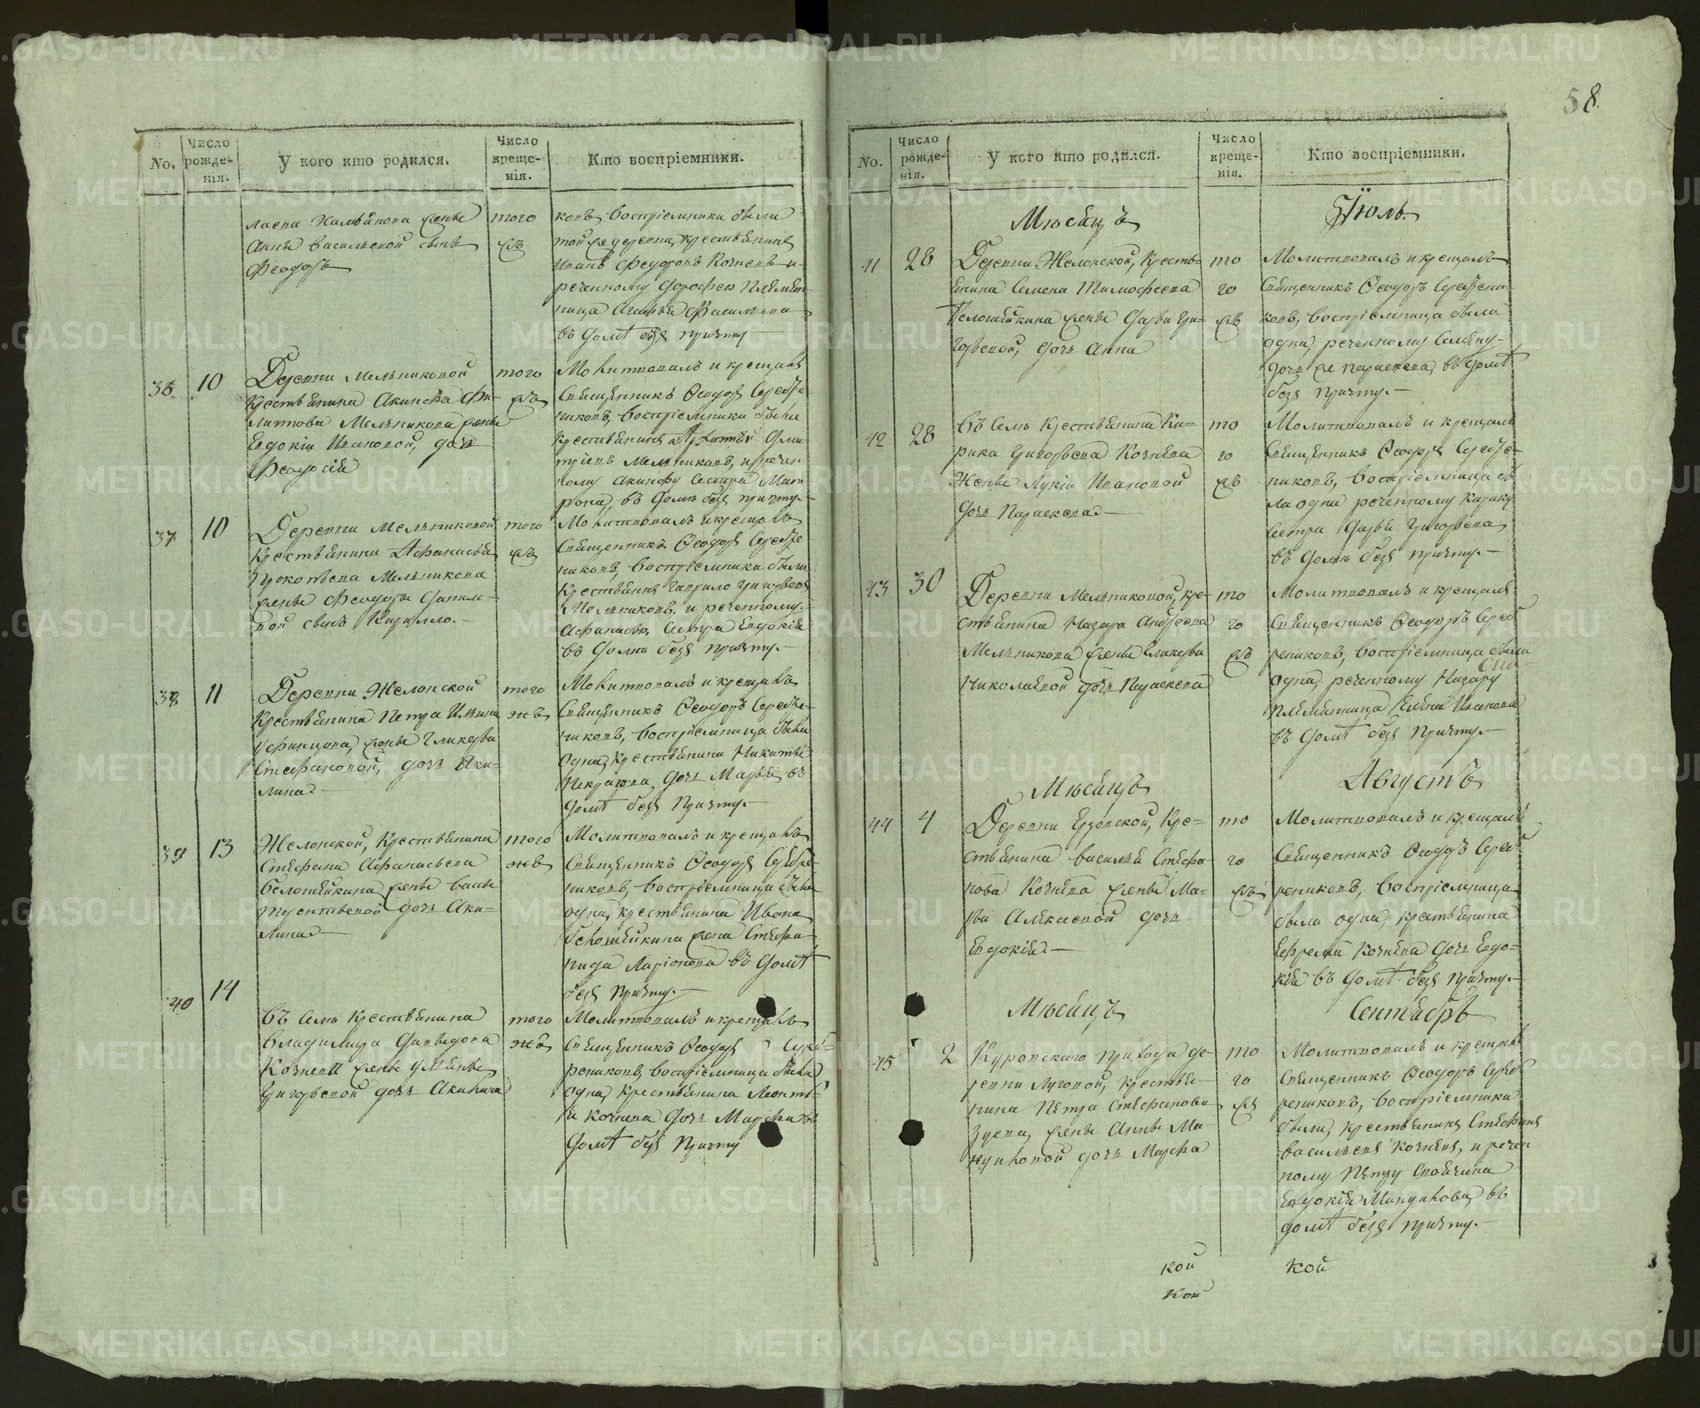 58
No.
Число рожденія.
У кого кто родился.
Число крещенія.
Кто воспріемники.
женѣ
Анны Васильевой сынъ
Феодоръ
того
жъ
ковъ, воспріемники были
той же деревни, крестьянинъ
Иванъ Феодоровъ Кочневъ и
реченному Дорофею племян
ница
въ домѣ безъ причту
36
10
Деревни Мельниковой
крестьянина Акинфа Фи-
липпова Мельникова жены
Евдокіи Ивановой, дочь
Феодосія
того
жъ
Молитвовалъ и крещалъ
Священникъ Ѳеодоръ Серебре
никовъ, воспріемники были
крестьянинъ Дми
тріевъ Мельниковъ, и речен
ному Акинфу сестра Мат
рона, въ домѣ безъ причту.
37
10
Деревни Мельниковой
крестьянина Афанасья
Прокопьева Мельникова
жены Феодоры
сынъ Кирилло.
того
жъ
Молитвовалъ и крещалъ
Священникъ Ѳеодоръ Серебре-
никовъ, воспріемники были
крестьянинъ Гаврило Григорьевъ
Мельниковъ, и реченному
Афанасью, сестра Евдокія
въ домѣ безъ причту.
38
11
Деревни Жалонской
крестьянина Петра Ильина
жены Гликеріи
Стефановой, дочь Аки-
лина
того
жъ
Молитвовалъ и крещалъ
Священникъ Ѳеодоръ Серебре-
никовъ, воспріемница была
одна, крестьянина Никиты
Некрасова дочь Марья, въ
домѣ безъ причту.
39
13
Жалонской, крестьянина
Стефана Афанасьева
Белошейкина жены
дочь Аки-
лина
того
жъ
Молитвовалъ и крещалъ
Священникъ Ѳеодоръ Серебре-
никовъ, воспріемница была
одна, крестьянина Ивана
Белошейкина жена Стефа-
нида Ларіонова въ домѣ
безъ причту.
40
14
Въ селѣ крестьянина
Владимира Давыдова
Кочнева жены
Григорьевой дочь Акилина
того
жъ
Молитвовалъ и крещалъ
Священникъ Ѳеодоръ Сереб-
рениковъ, воспріемница была
одна, крестьянина Леонть-
я Кочнева дочь Марфа въ
домѣ безъ причту
No.
Число рожденія.
У кого кто родился.
Число крещенія.
Кто воспріемники.
Мѣсяцъ
Іюль.
41
28
Деревни Жалонской, кресть-
янина Семена Тимофеева
Белошейкина жены Дарьи Гри-
горьевой, дочь Анна
то
го
жъ
Молитвовалъ и крещалъ
Священникъ Ѳеодоръ Серебрени-
ковъ, воспріемница была
одна, реченному Семену
дочь же Параскева, въ домѣ
безъ причту.
42
28
Въ селѣ крестьянина Ки-
рика Григорьева Кочнева
жены Лукіи Ивановой
дочь Параскева
то
го
жъ
Молитвовалъ и крещалъ
Священникъ Ѳеодоръ Серебре-
никовъ, воспріемница бы
ла одна реченному Кирику
сестра Дарья Григорьева,
въ домѣ безъ причту.
43
30
Деревни Мельниковой, кре-
стьянина Назара Андреева
Мельникова жены Гликеріи
Николаевой дочь Параскева
то
го
жъ
Молитвовалъ и крещалъ
Священникъ Ѳеодоръ Сереб
рениковъ, воспріемница была
одна, реченному Назару
племянница Елена Иванова
въ домѣ безъ причту.
Мѣсяцъ
Августъ
44
4
Деревни Ерзовской, кре-
стьянина Василья Стефа-
нова Кочнева жены Ма-
ріи Алексеевой дочь
Евдокія
то
го
жъ
Молитвовалъ и крещалъ
Священникъ Ѳеодоръ Сереб
рениковъ, воспріемница
была одна, крестьянина
Ефрема Кочнева дочь Евдо-
кія въ домѣ безъ причту.
Мѣсяцъ
Сентябрь
45
2
Куровскаго прихода де-
ревни Луговой, крестья-
нина Петра Стефанова
Зуева, жены Анны Ма-
дочь Марфа
то
го
жъ
Молитвовалъ и крещалъ
Священникъ Ѳеодоръ Сереб
рениковъ, воспріемники
были, крестьянинъ Стефанъ
Васильевъ Кочневъ, и речен
ному Петру своячина
Евдокія въ
домѣ безъ причту.
кой
кой
кой